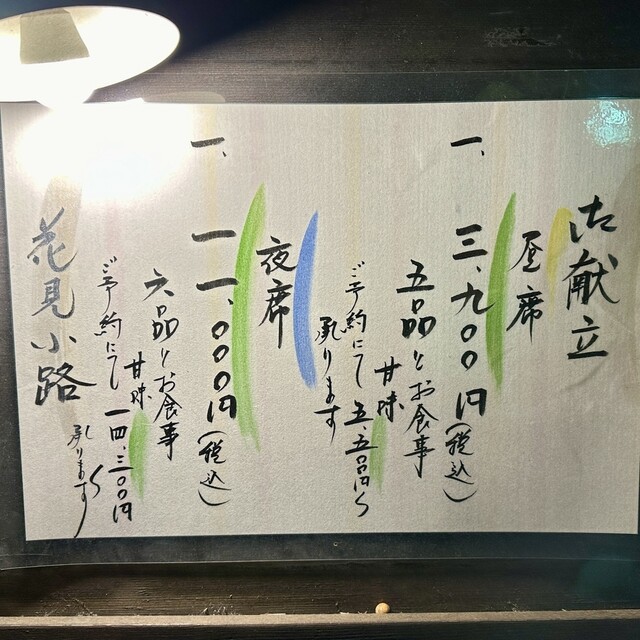 御献立
昼席
一、三、九〇〇円(税込)
五品とお食事
甘味
ご予約にて五、五〇〇円〜
承ります
夜席
一、一一、〇〇〇円(税込)
六品とお食事
甘味
ご予約にて一四、三〇〇円〜
承ります
花見小路